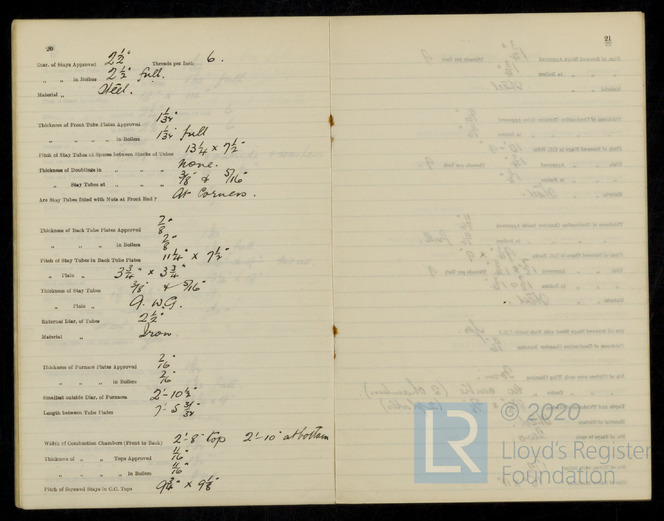 20
Diar. of Stays Approved 2 1/2" Threads per Inch 6.
„ „ in Boilers 2 1/2" full.
Material „ Steel.
Thickness of Front Tube Plates Approved 1 1/32"
„ „ „ „ in Boilers 1 1/32" full
Pitch of Stay Tubes at Spaces between Stacks of Tubes 13 1/4 × 7 1/2"
Thickness of Doublings in „ „ None.
„ Stay Tubes at „ „ 3/8" & 5/16"
Are Stay Tubes fitted with Nuts at Front End? At Corners.
Thickness of Back Tube Plates Approved
„ „ „ in Boilers
Pitch of Stay Tubes in Back Tube Plates 11 1/4" × 7 1/2"
„ Plain „ 3 3/4" × 3 3/4"
Thickness of Stay Tubes 3/8" & 5/16"
„ Plain „ 9. W.G.
External Diar. of Tubes 2 1/2"
Material „ Iron.
Thickness of Furnace Plates Approved
„ „ „ in Boilers
Smallest outside Diar. of Furnaces 2'-10 1/2"
Length between Tube Plates 7'-5 3/32"
Width of Combustion Chambers (Front to Back) 2'-8" top 2'-10" at bottom
Thickness of „ „ Tops Approved 11/16"
„ „ „ „ in Boilers 11/16"
Pitch of Screwed Stays in C.C. Tops 9 3/4" × 9 1/8"
21
© 2020
LR
Lloyd's Register
Foundation